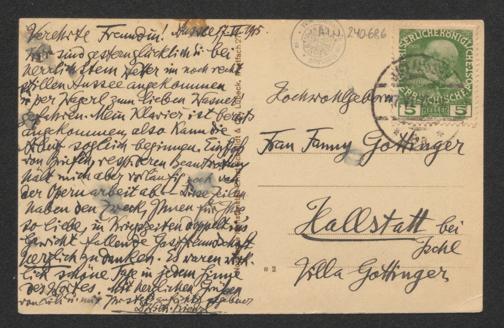 Verehrte Freundin! Aussee 7. VI 915.
Wir sind gestern glücklich bei
herrlichstem Wetter im noch recht
stillen Aussee angekommen
u per Wagerl zum lieben Wasner
gefahren. Mein Klavier ist bereits
angekommen, also kann die
Arbeit sogleich beginnen.
hält mich aber vorläufig noch von
der Opernarbeit ab – Diese Zeilen
haben den Zweck, Ihnen für Ihre
so liebe, in Kriegszeiten doppelt ins
Gewicht fallende Gastfreundschaft
herzlich zu danken. Es waren wirk-
lich schöne Tage in jedem Sinne
des Wortes. Mit herzlichen Grüßen
240686
KAISERLICHE KÖNIGLICHE
5 5
Hochwohlgeboren
Frau Fanny Göttinger
Hallstatt bei
Ischl
Villa Göttinger